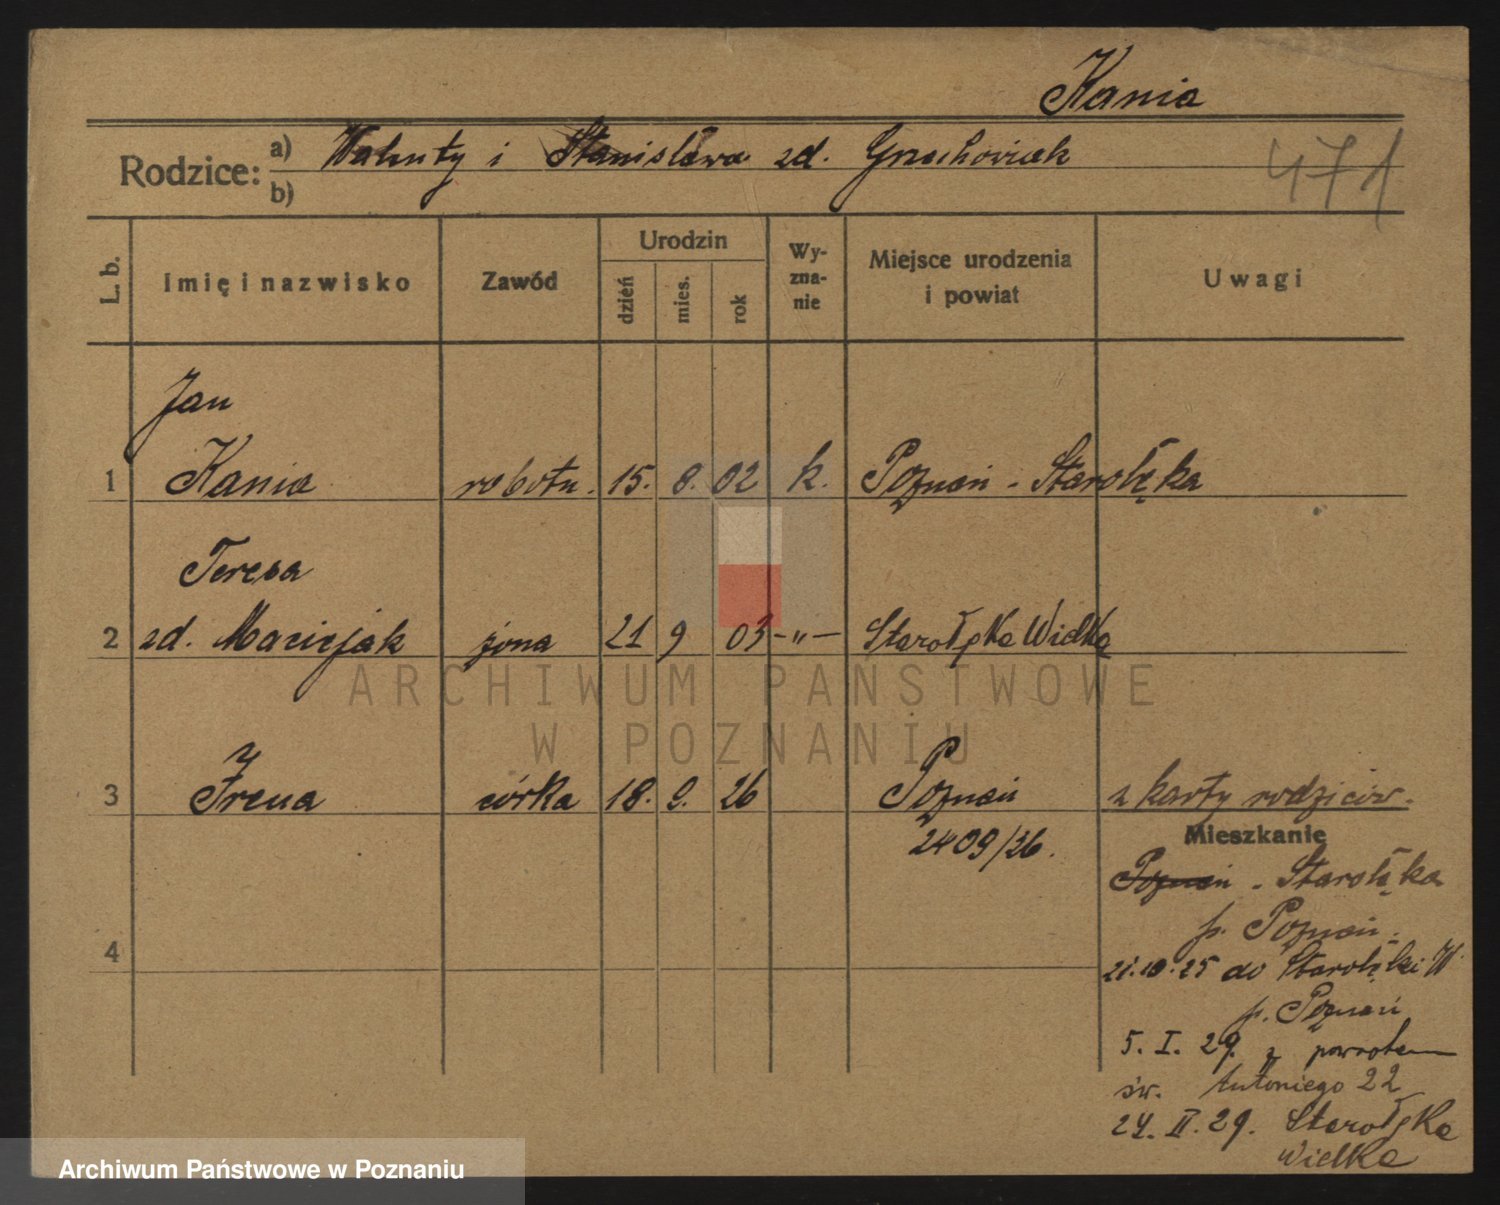 Kania
Rodzice: a) Walenty i Stanisława zd. Grzechowiak
b)
471
L. b.
Imię i nazwisko
Zawód
Urodzin
dzień
mies.
rok
Wy-
zna-
nie
Miejsce urodzenia
i powiat
Uwagi
Jan
1 Kania robotn. 15. 8. 02 k. Poznań - Starołęka
Teresa
2 zd. Maciejak żona 21 9 03 -"- Starołęka Wielka
3 Irena córka 18. 9. 26 Poznań z karty rodziców.
2409/26.
Mieszkanie
Poznań - Starołęka
p. Poznań.
4
21.10.25 do Starołęki W.
p. Poznań
5. I. 29. z powrotem
św. Antoniego 22
24. II. 29. Starołęka
Wielka
ARCHIWUM PAŃSTWOWE
W POZNANIU
Archiwum Państwowe w Poznaniu